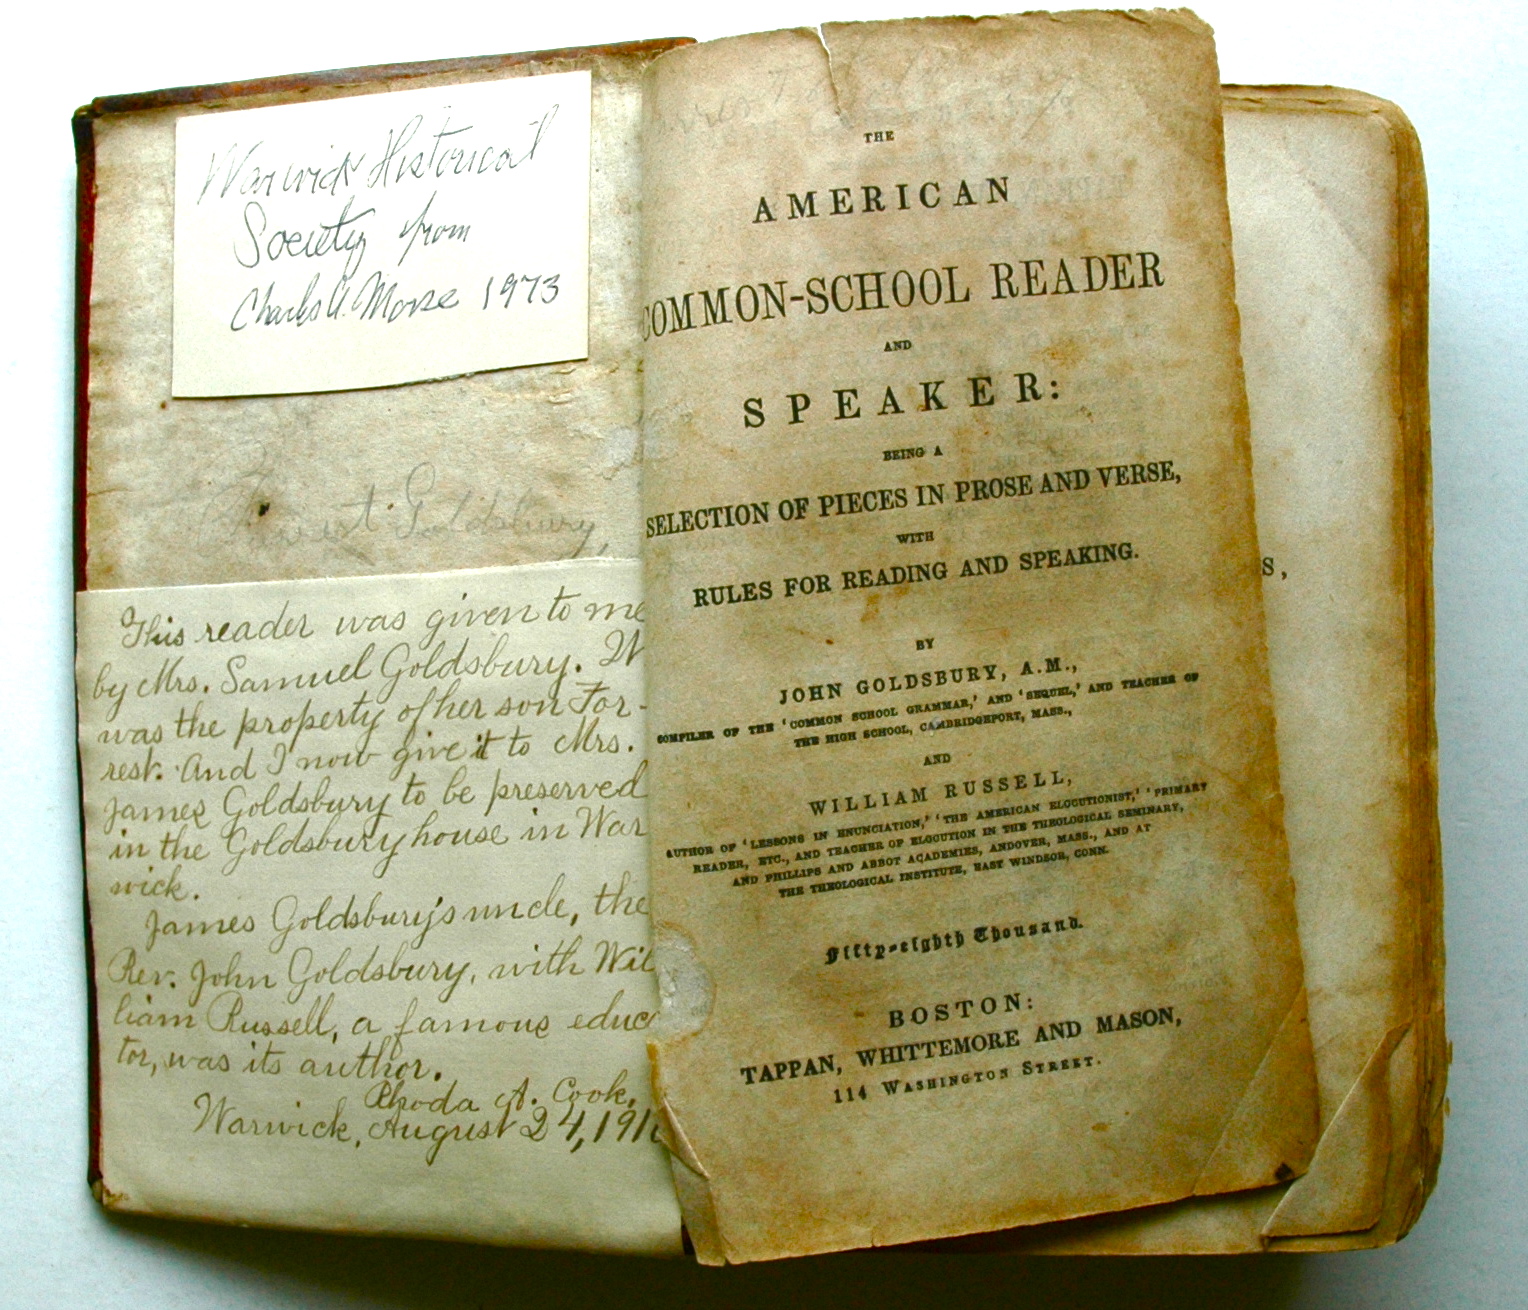 Warwick Historical
Society from
Charles A. Morse 1973
Forrest Goldsbury,
This reader was given to me
by Mrs. Samuel Goldsbury. It
was the property of her son For-
rest. And I now give it to Mrs.
James Goldsbury to be preserved
in the Goldsbury house in War
wick.
James Goldsbury's uncle, the
Rev. John Goldsbury, with Wil
liam Russell, a famous educ
tor, was its author.
Rhoda A. Cook.
Warwick, August 24, 191
THE
AMERICAN
COMMON-SCHOOL READER
AND
SPEAKER:
BEING A
SELECTION OF PIECES IN PROSE AND VERSE,
WITH
RULES FOR READING AND SPEAKING.
BY
JOHN GOLDSBURY, A.M.,
COMPILER OF THE 'COMMON SCHOOL GRAMMAR,' AND 'SEQUEL,' AND TEACHER OF
THE HIGH SCHOOL, CAMBRIDGEPORT, MASS.,
AND
WILLIAM RUSSELL,
AUTHOR OF 'LESSONS IN ENUNCIATION,' 'THE AMERICAN ELOCUTIONIST,' 'PRIMARY
READER, ETC., AND TEACHER OF ELOCUTION IN THE THEOLOGICAL SEMINARY,
AND PHILLIPS AND ABBOT ACADEMIES, ANDOVER, MASS., AND AT
THE THEOLOGICAL INSTITUTE, EAST WINDSOR, CONN.
Fifty-eighth Thousand.
BOSTON:
TAPPAN, WHITTEMORE AND MASON,
114 WASHINGTON STREET.
S,